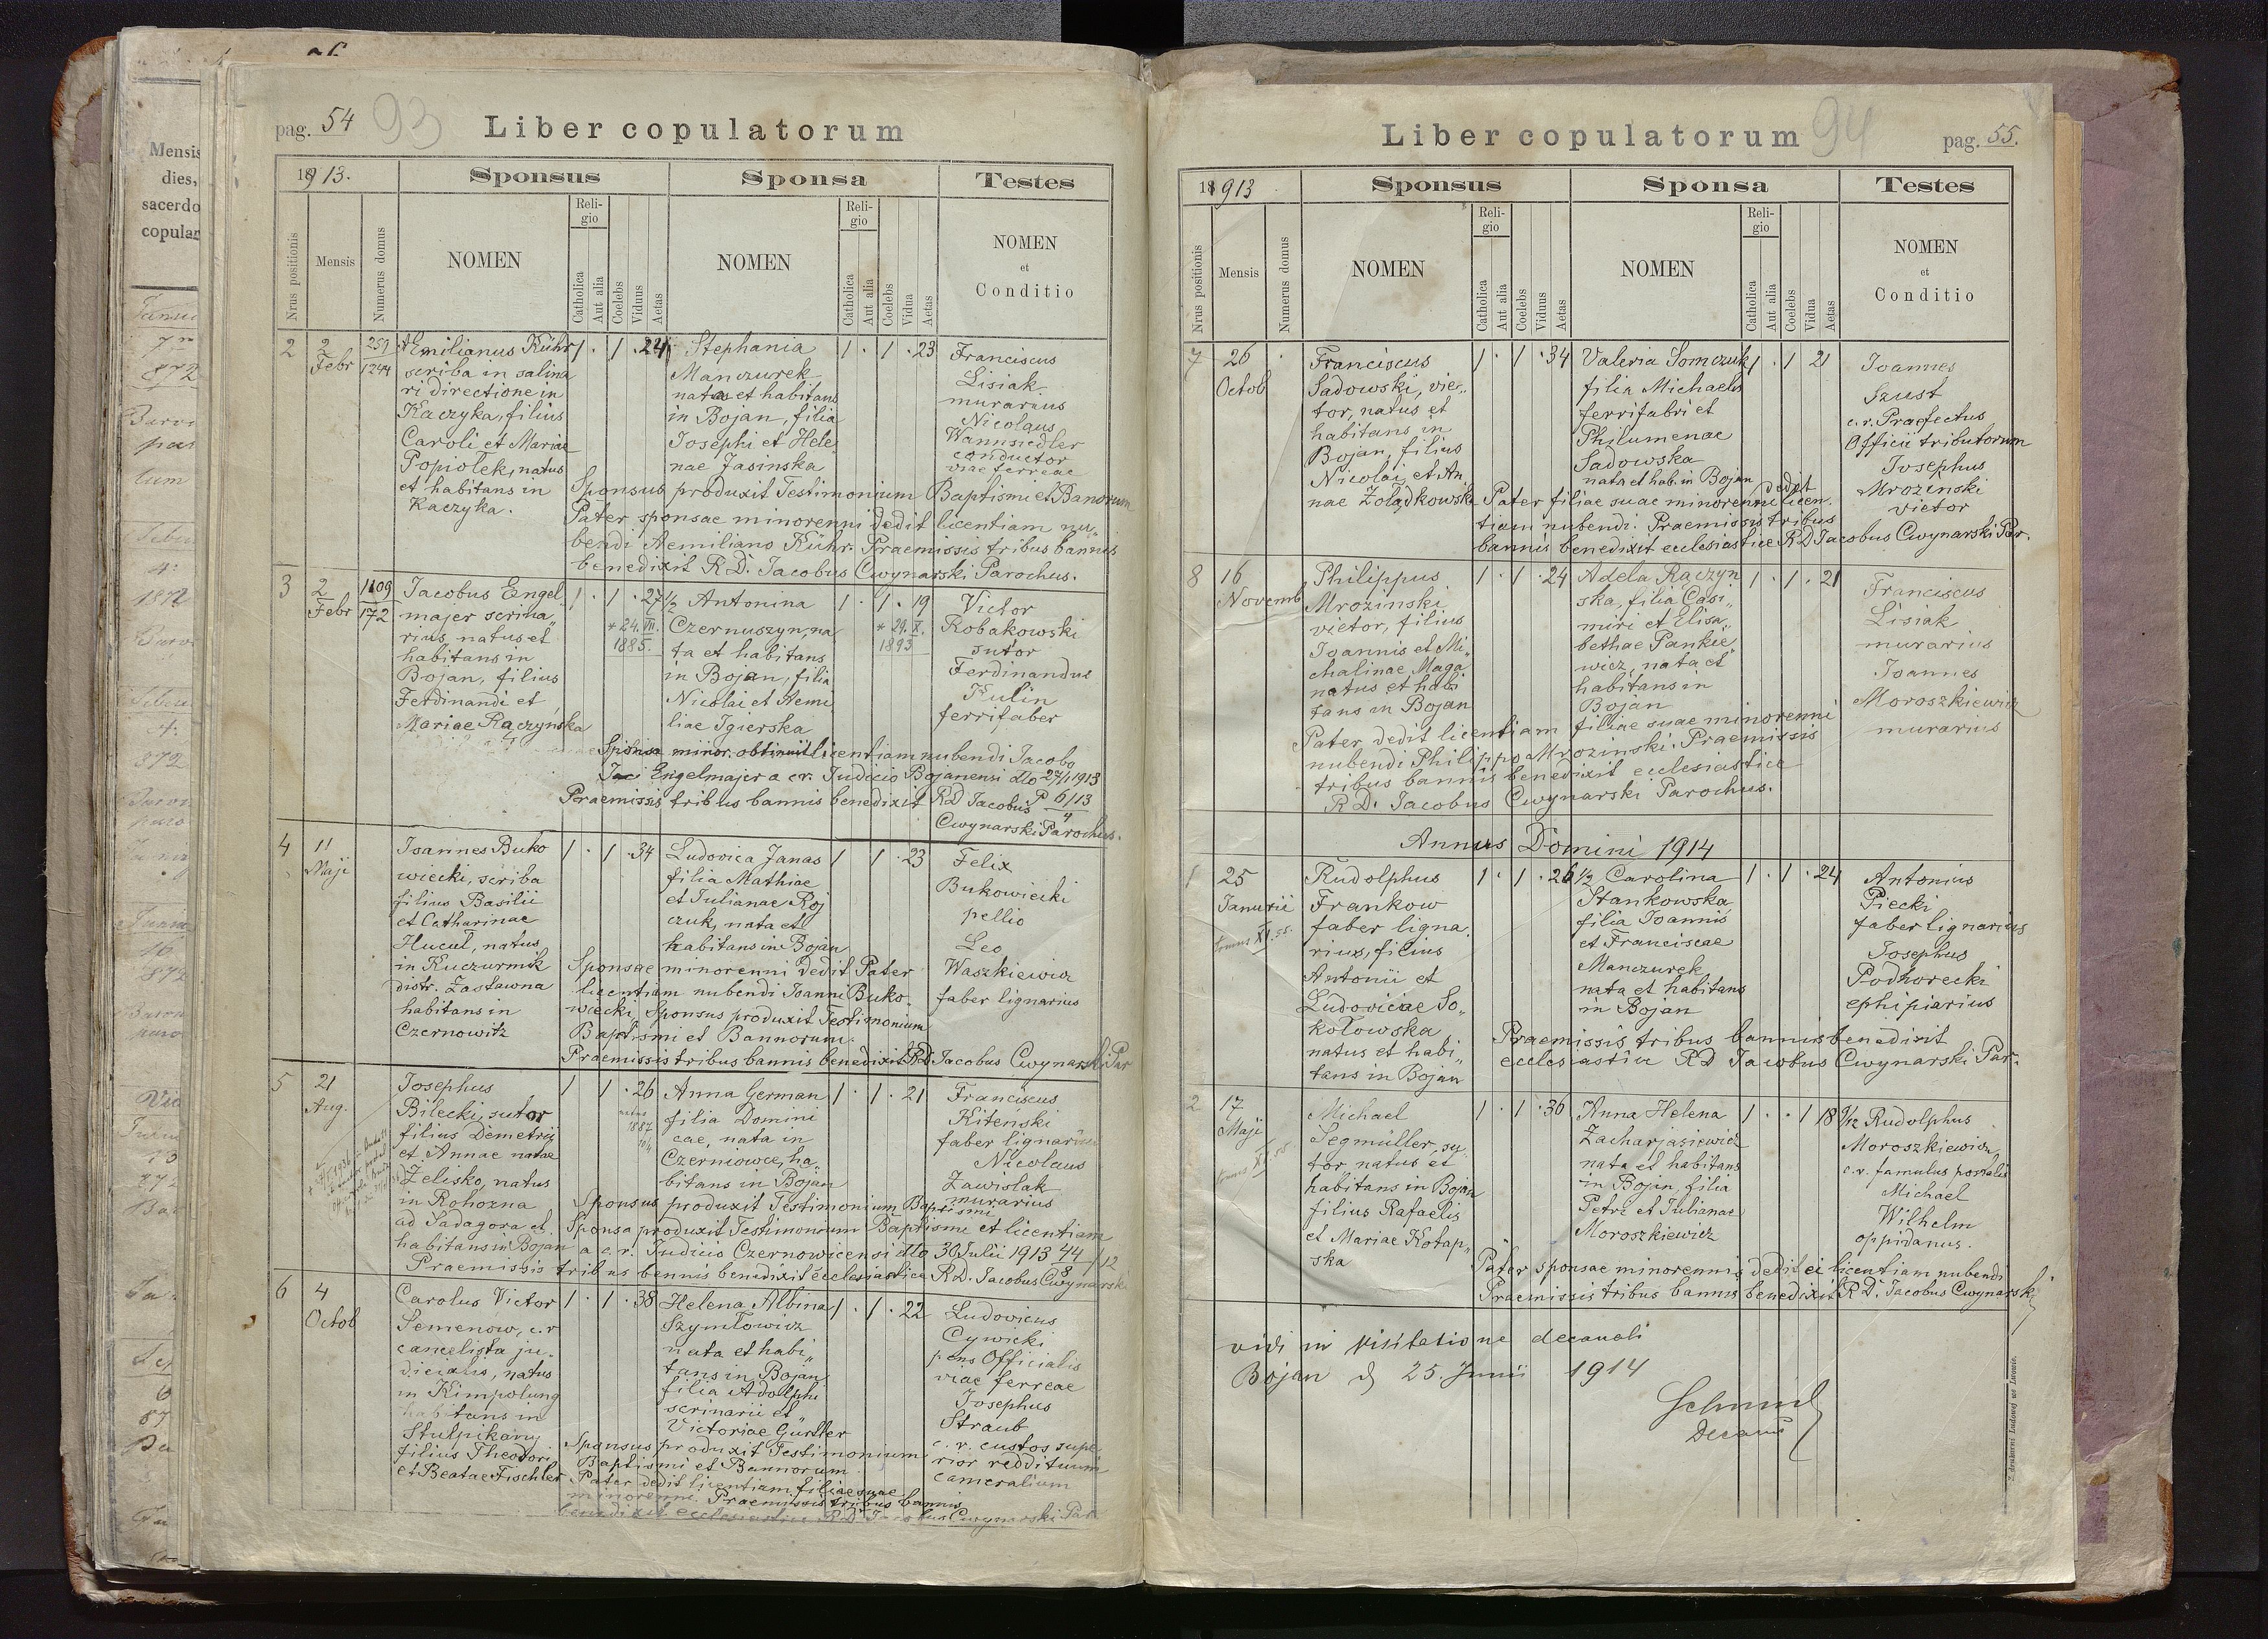 pag. 54 93 Liber copulatorum
1913. Sponsus Sponsa Testes
Nrus positionis Mensis Numerus domus NOMEN Religio Catholica Aut alia Coelebs Viduus Aetas NOMEN Religio Catholica Aut alia Coelebs Vidua Aetas NOMEN et Conditio
2
2 Febr
259
1244
Aemilianus Kühr
scriba in salina
ri directione in
Kaczyka, filius
Caroli et Mariae
Popiołek, natus
et habitans in
Kaczyka.
1 · 1 · 24
Stephania
Manczurek
nata et habitans
in Bojan, filia
Josephi et Hele„
nae Jasinska
1 · 1 · 23
Franciscus
Lisiak
murarius
Nicolaus
Wannsiedler
conductor
viae ferreae
Sponsus produxit Testimonium Baptismi et Banorum
Pater sponsae minorenni dedit licentiam nu„
bendi Aemiliano Kühr. Praemissis tribus bannis
benedixit R.D. Jacobus Cwynarski Parochus.
3
2 Febr
1109
172
Jacobus Engel
majer scrina„
rius, natus et
habitans in
Bojan, filius
Ferdinandi et
Mariae Rączyńska
1 · 1 · 27 1/2
* 24. VII.
1885.
Antonina
Czernuszyn, na
ta et habitans
in Bojan, filia
Nicolai et Aemi
liae Igierska
1 · 1 · 19
* 29. X.
1893
Victor
Robakowski
sutor
Ferdinandus
Kulin
ferrifaber
Sponsa minor. obtinuit licentiam nubendi Jacobo
Engelmajer a c.r. Judicio Bojanensi dto 27/1 1913
P 6/13
4
Praemissis tribus bannis benedixit RD Jacobus
Cwynarski Parochus.
4
11
Maji
Joannes Buko
wiecki, scriba
filius Basilii
et Catharinae
Hucuł, natus
in Kuczurmik
distr. Zastawna
habitans in
Czernowitz
1 · 1 · 34
Ludovica Janas
filia Mathiae
et Julianae Roj
czuk, nata et
habitans in Bojan
1 1 · 23
Felix
Bukowiecki
pellio
Leo
Waszkiewicz
faber lignarius
Sponsae minorenni dedit Pater
licentiam nubendi Joanni Buko„
wiecki, Sponsus produxit Testimonium
Baptismi et Bannorum.
Praemissis tribus bannis benedixit RD Jacobus Cwynarski Par
5
21
Aug.
Josephus
Bilecki, sutor
filius Demetrii
et Annae natae
Zelisko, natus
in Rohozna
ad Sadagora et
habitans in Bojan
1 1 · 26
natus
1887
Anna German
filia Domini
cae, nata in
Czerniowce, ha„
bitans in Bojan
1 · 1 · 21
Franciscus
Kiteński
faber lignarius
Nicolaus
Zawislak
murarius
Sponsus produxit Testimonium Baptismi
Sponsa produxit Testimonium Baptismi et licentiam
a c.r. Judicio Czernowicensi dto 30 Julii 1913 44/12
8
Praemissis tribus bannis benedixit ecclesiastice R.D. Jacobus Cwynarski
6
4
Octob
Carolus Victor
Semenow, c.r
cancelista ju„
dicialis, natus
in Kimpolung
habitans in
Stulpikany
filius Theodori
et Beatae Fischler
1 · 1 · 38
Helena Albina
Szymłowicz
nata et habi„
tans in Bojan
filia Adolphi
scrinarii et
Victoriae Gürtler
1 · 1 · 22
Ludovicus
Cywicki
pens Officialis
viae ferreae
Josephus
Straub
c. r. custos supe„
rior reddituum
cameralium
Sponsus produxit Testimonium
Baptismi et Bannorum
Pater dedit licentiam filiae suae
minorenni. Praemissis tribus bannis
benedixit ecclesiastice R.D. Jacobus Cwynarski Par
Liber copulatorum 94 pag. 55.
1913 Sponsus Sponsa Testes
Nrus positionis Mensis Numerus domus NOMEN Religio Catholica Aut alia Coelebs Viduus Aetas NOMEN Religio Catholica Aut alia Coelebs Vidua Aetas NOMEN et Conditio
7
26
Octob
Franciscus
Sadowski, vie„
tor, natus et
habitans in
Bojan, filius
Nicolai et An
nae Żołądkowski
1 · 1 · 34
Valeria Somczuk
filia Michaelis
ferrifabri et
Philumenae
Sadowska
nata et hab. in Bojan
1 · 1 21
Joannes
Szust
c.r. Praefectus
Officii tributorum
Josephus
Mrozinski
vietor
Pater filiae suae minorenni dedit licen„
tiam nubendi. Praemissis tribus
bannis benedixit ecclesiastice RD Jacobus Cwynarski Par.
8
16
Novemb
Philippus
Mrozinski
vietor, filius
Joannis et Mi„
chalinae Maga
natus et habi
tans in Bojan
1 · 1 · 24
Adela Raczyn
ska, filia Casi„
miri et Elisa„
bethae Pankie„
wicz, nata et
habitans in
Bojan
1 · 1 · 21
Franciscus
Lisiak
murarius
Joannes
Moroszkiewicz
murarius
Pater dedit licentiam filiae suae minorenni
nubendi Philippo Mrozinski. Praemissis
tribus bannis benedixit ecclesiastice
R.D. Jacobus Cwynarski Parochus.
Annus Domini 1914
1
25
Januarii
Rudolphus
Frankow
faber ligna„
rius, filius
Antonii et
Ludovicae So„
kołowska
natus et habi„
tans in Bojan
1 · 1 · 26 1/2
Carolina
Stankowska
filia Joannis
et Franciscae
Manczurek
nata et habitans
in Bojan
1 · 1 · 24
Antonius
Piecki
faber lignarius
Josephus
Podhorecki
ephipiarius
Praemissis tribus bannis benedixit
ecclesiastice RD Jacobus Cwynarski Par.
2
17
Maji
Michael
Segmüller, su„
tor natus et
habitans in Bojan
filius Rafaelis
et Mariae Kotap„
ska
1 · 1 · 36
Anna Helena
Zacharjasiewicz
nata et habitans
in Bojan, filia
Petri et Julianae
Moroszkiewicz
1 · · 1 18 9/12
Rudolphus
Moroszkiewicz
c.r. famulus postalis
Michael
Wilhelm
oppidanus.
Pater sponsae minorennis dedit ei licentiam nubendi
Praemissis tribus bannis benedixit R.D. Jacobus Cwynarski
vidi in visitatione decanali
Bojan d 25 Junii 1914
Schmid
Decanus
Z drukarni Ludowej we Lwowie.